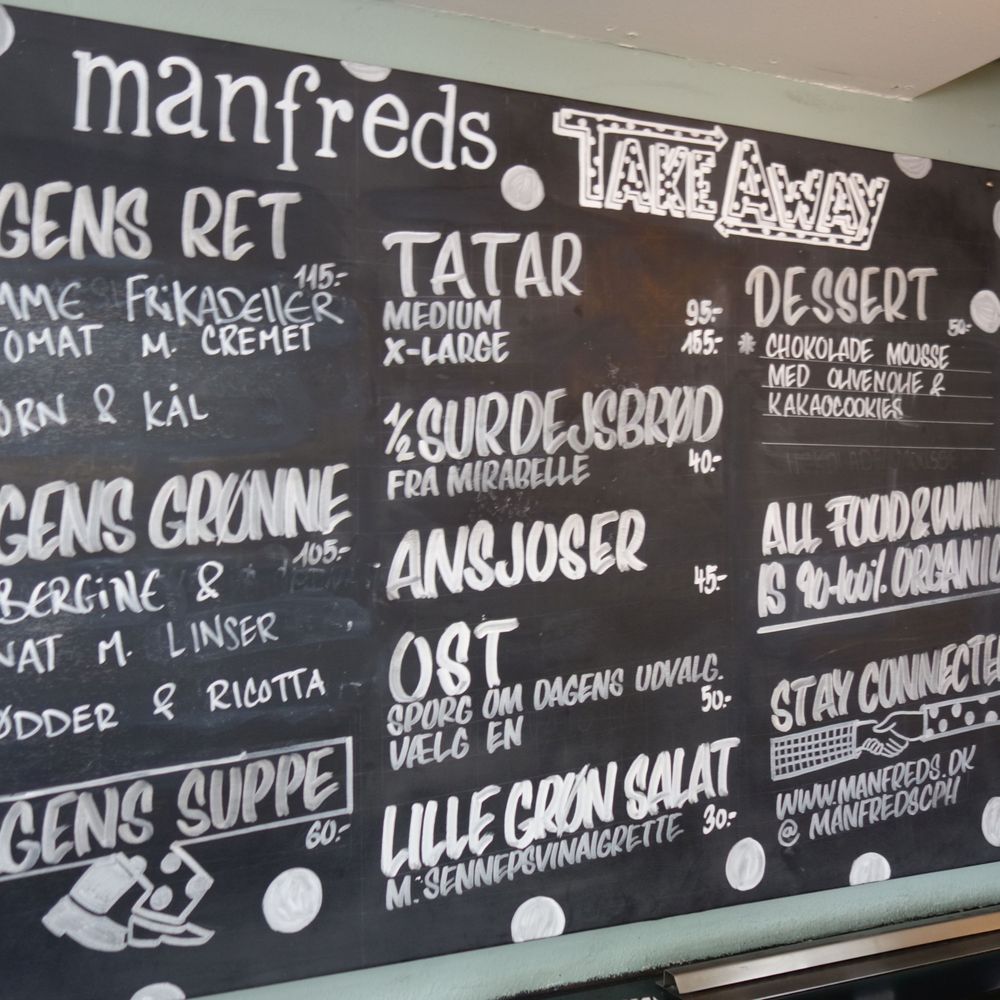 manfreds
TAKE AWAY
GENS RET
115.-
MME FRIKADELLER
TOMAT M. CREMET
ORN & KÅL
GENS GRØNNE
105.-
BERGINE &
NAT M. LINSER
ØDDER & RICOTTA
GENS SUPPE
60.-
TATAR
MEDIUM 95.-
X-LARGE 155.-
1/2 SURDEJSBRØD
FRA MIRABELLE 40.-
ANSJOSER
45.-
OST
SPØRG OM DAGENS UDVALG.
VÆLG EN 50.-
LILLE GRØN SALAT
M. SENNEPSVINAIGRETTE 30.-
DESSERT
50.-
* CHOKOLADE MOUSSE
MED OLIVENOLIE &
KAKAOCOOKIES
ALL FOOD & WIN
IS 90-100% ORGANIC
STAY CONNECTE
WWW.MANFREDS.DK
@ MANFREDSCPH